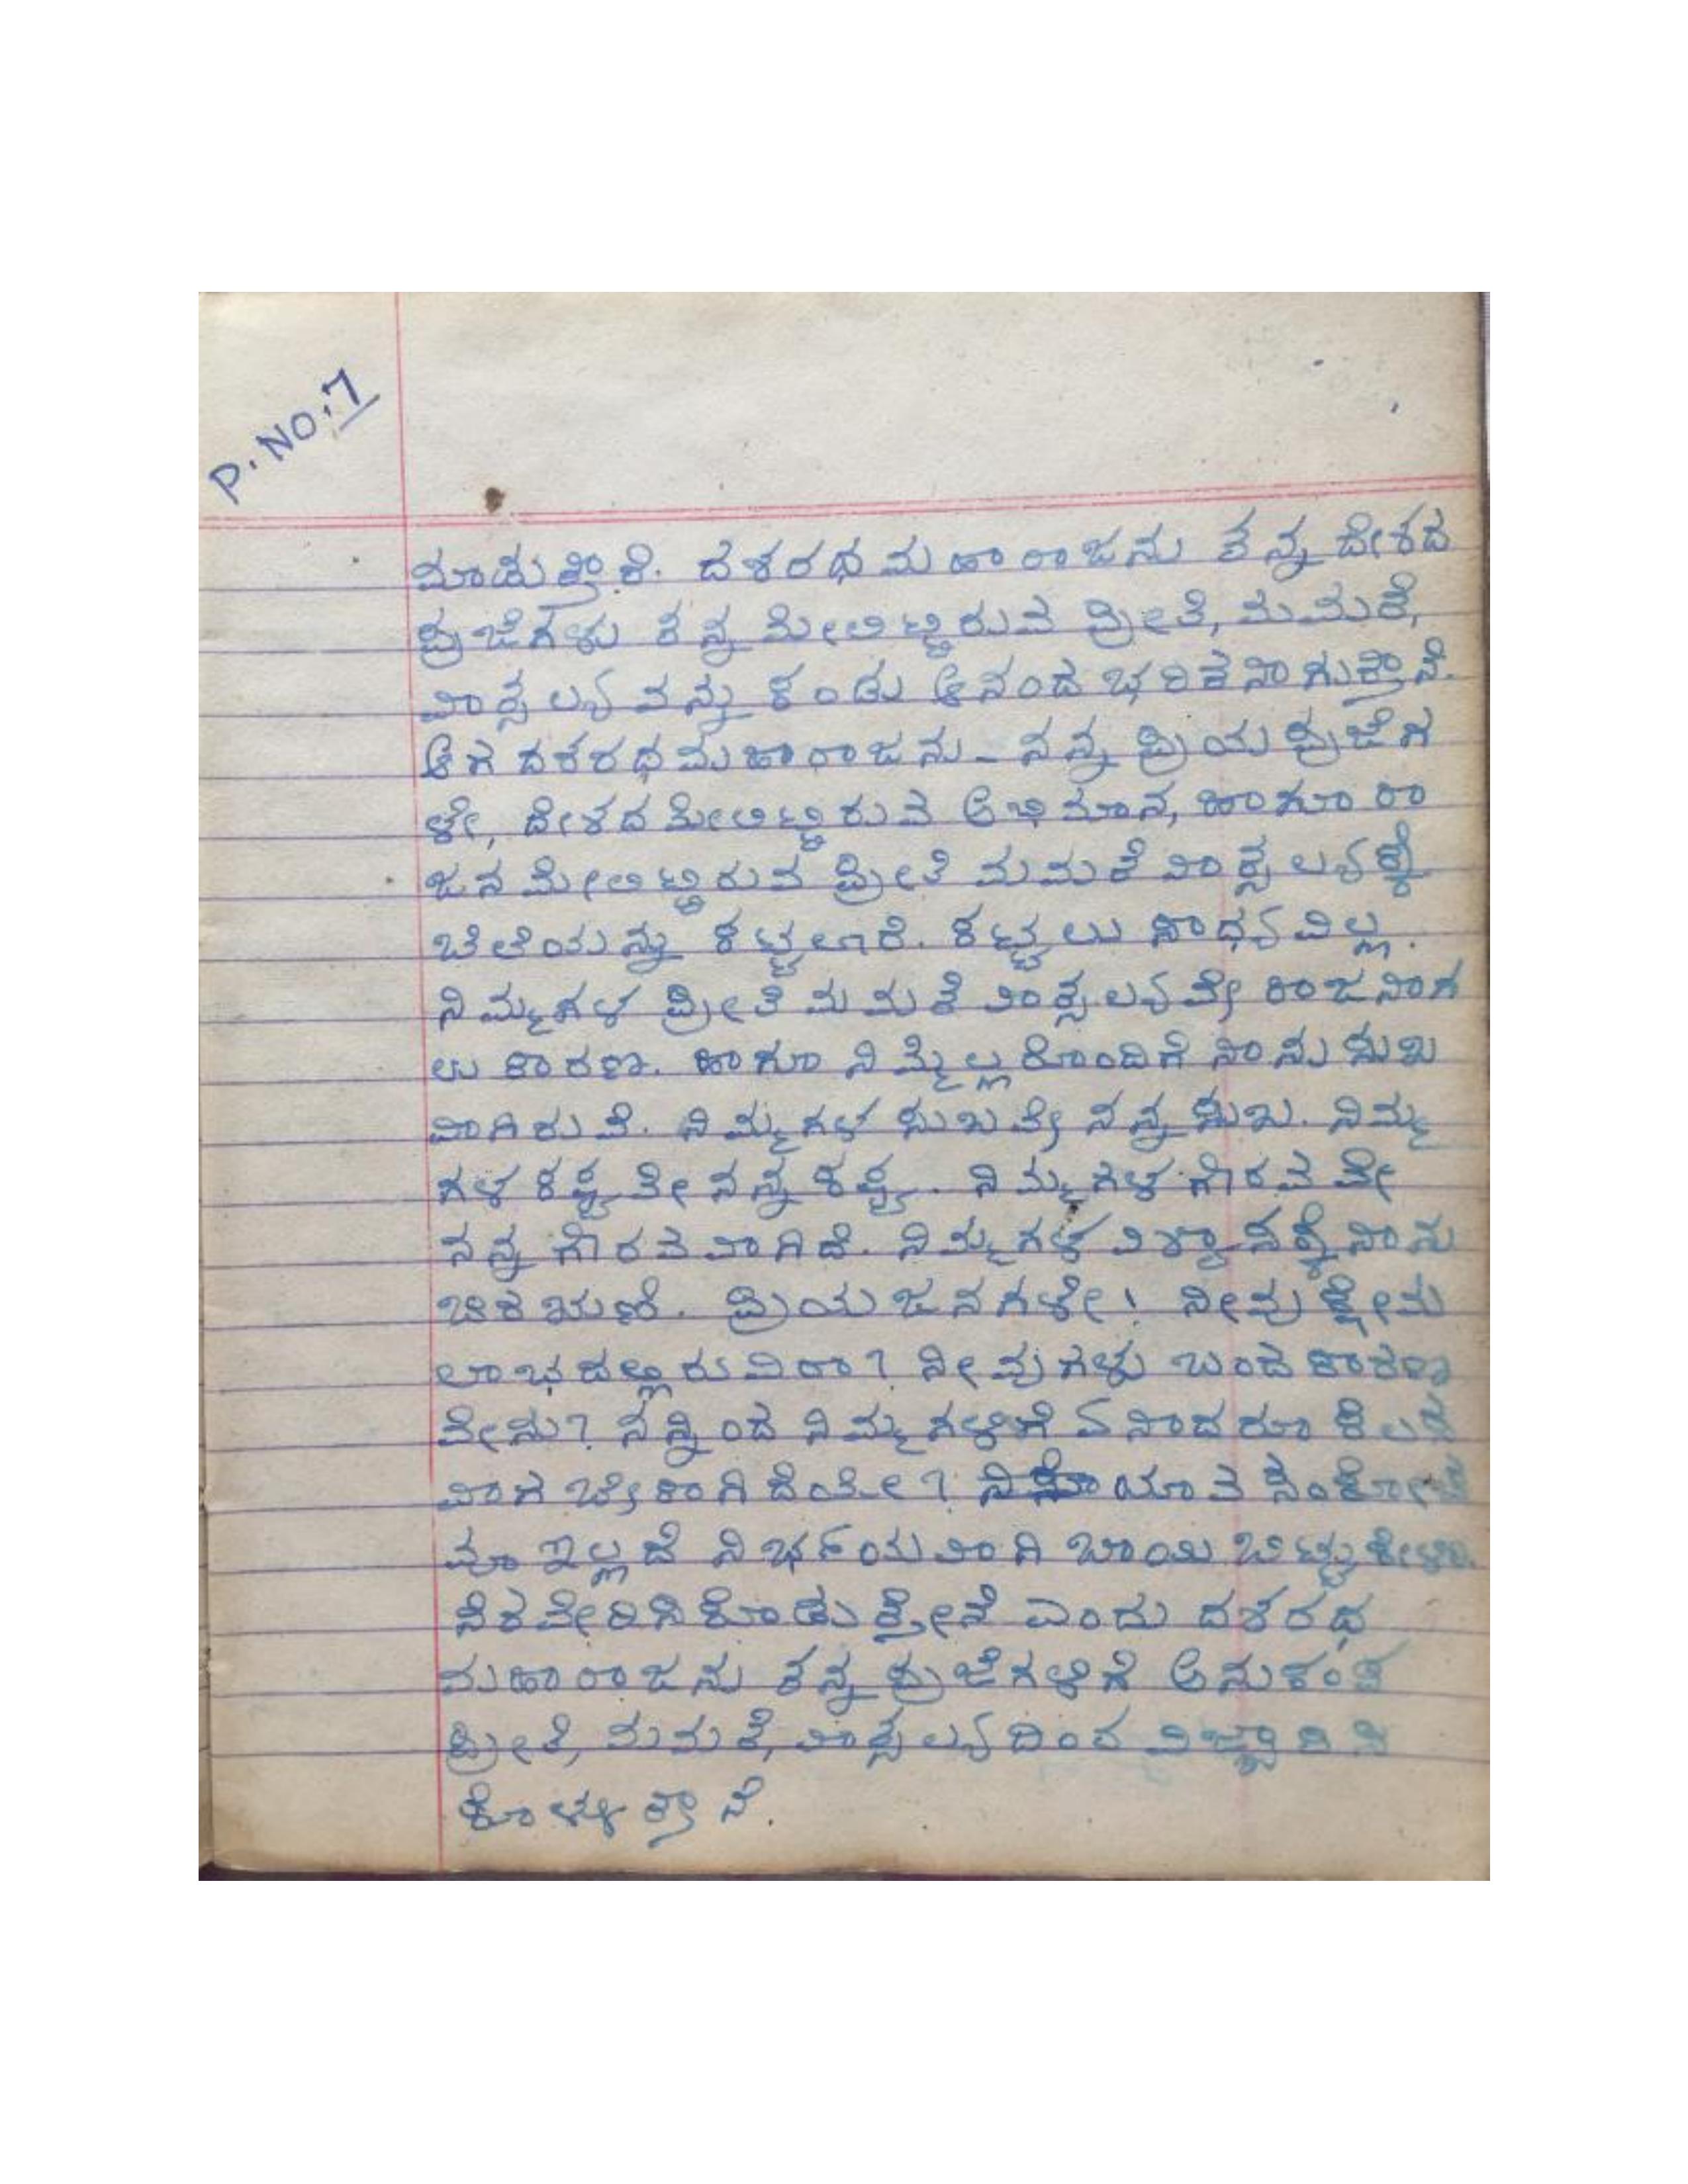 P. NO:7
ಮಾಡುತ್ತಾರೆ. ದಶರಥ ಮಹಾರಾಜನು ತನ್ನ ದೇಶದ
ಪ್ರಜೆಗಳು ತನ್ನ ಮೇಲಿಟ್ಟಿರುವ ಪ್ರೀತಿ, ಮಮತೆ,
ವಾತ್ಸಲ್ಯವನ್ನು ಕಂಡು ಆನಂದ ಭರಿತನಾಗುತ್ತಾನೆ.
ಆಗ ದಶರಥ ಮಹಾರಾಜನು - ನನ್ನ ಪ್ರಿಯ ಪ್ರಜೆಗ
ಳೇ, ದೇಶದ ಮೇಲಿಟ್ಟಿರುವ ಅಭಿಮಾನ, ಹಾಗೂ ರಾ
ಜನ ಮೇಲಿಟ್ಟಿರುವ ಪ್ರೀತಿ ಮಮತೆ ವಾತ್ಸಲ್ಯಕ್ಕೆ
ಬೆಲೆಯನ್ನು ಕಟ್ಟಲಾರೆ. ಕಟ್ಟಲು ಸಾಧ್ಯವಿಲ್ಲ.
ನಿಮ್ಮಗಳ ಪ್ರೀತಿ ಮಮತೆ ವಾತ್ಸಲ್ಯವೇ ರಾಜನಾಗ
ಲು ಕಾರಣ. ಹಾಗೂ ನಿಮ್ಮೆಲ್ಲರೊಂದಿಗೆ ನಾನು ಸುಖ
ವಾಗಿರುವೆ. ನಿಮ್ಮಗಳ ಸುಖವೇ ನನ್ನ ಸುಖ. ನಿಮ್ಮ
ಗಳ ಕಷ್ಟವೇ ನನ್ನ ಕಷ್ಟ. ನಿಮ್ಮಗಳ ಗೌರವವೇ
ನನ್ನ ಗೌರವವಾಗಿದೆ. ನಿಮ್ಮಗಳ ವಿಶ್ವಾಸಕ್ಕೆ ನಾನು
ಚಿರಋಣಿ. ಪ್ರಿಯ ಜನಗಳೇ! ನೀವು ಕ್ಷೇಮ
ಲಾಭದಲ್ಲಿರುವಿರಾ? ನೀವುಗಳು ಬಂದ ಕಾರಣ
ವೇನು? ನನ್ನಿಂದ ನಿಮ್ಮಗಳಿಗೆ ಏನಾದರೂ ಕೆಲಸ
ವಾಗಬೇಕಾಗಿದೆಯೇ? ಯಾವ ಸಂಕೋಚ
ವೂ ಇಲ್ಲದೆ ನಿರ್ಭಯವಾಗಿ ಬಾಯಿ ಬಿಟ್ಟು ಕೇಳಿ.
ನೆರವೇರಿಸಿಕೊಡುತ್ತೇನೆ ಎಂದು ದಶರಥ
ಮಹಾರಾಜನು ತನ್ನ ಪ್ರಜೆಗಳಿಗೆ ಅನುಕಂಪ
ಪ್ರೀತಿ, ಮಮತೆ, ವಾತ್ಸಲ್ಯದಿಂದ ವಿಚಾರಿಸಿ
ಕೊಳ್ಳುತ್ತಾನೆ.